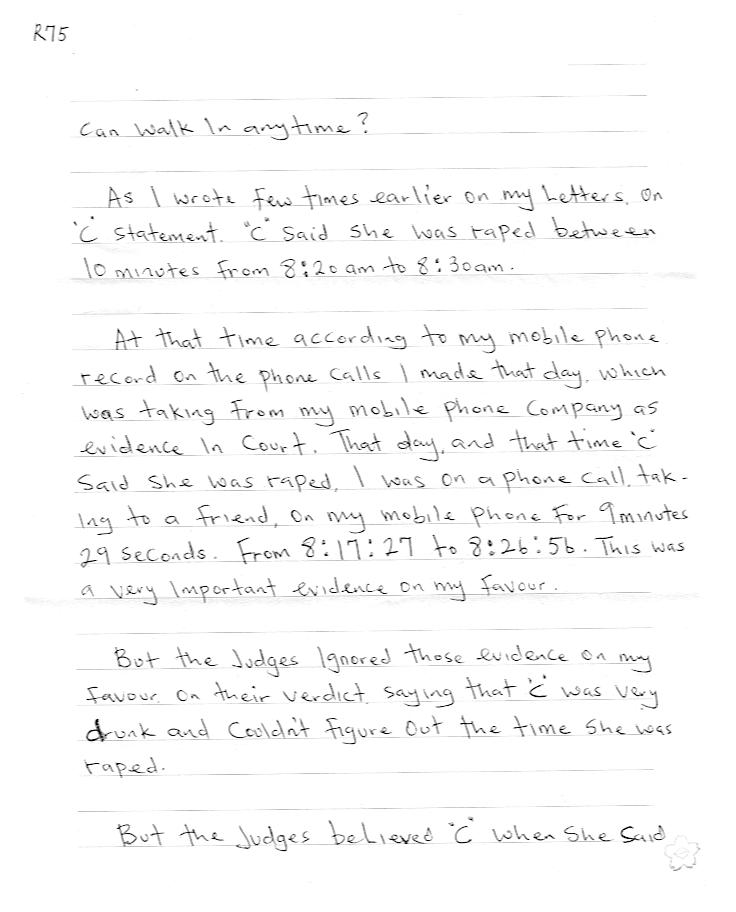 R75
Can Walk In anytime?
As I wrote few times earlier on my Letters, on
"C" statement. "C" Said She was raped between
10 minutes from 8:20 am to 8:30 am.
At that time according to my mobile phone
record on the phone calls I made that day, which
was taking from my mobile phone Company as
evidence In Court. That day, and that time "C"
Said She was raped, I was on a phone call, tak-
ing to a friend, on my mobile phone for 9 minutes
29 seconds. From 8:17:27 to 8:26:56. This was
a very Important evidence on my favour.
But the Judges Ignored those evidence on my
favour, on their verdict, saying that "C" was very
drunk and Couldn't figure out the time She was
raped.
But the Judges believed "C" when She Said